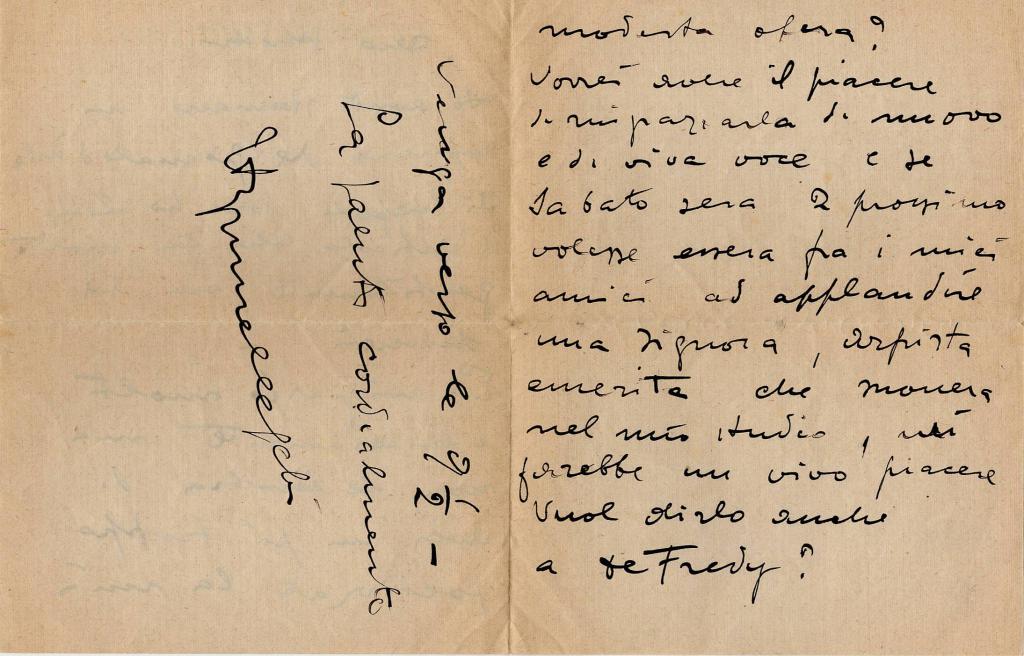 modesta opera?
Vorrei avere il piacere
di ringraziarla di nuovo
e di viva voce e se
Sabato sera 2 prossimo
volesse essere fra i miei
amici ad applaudire
una Signora, arpista
emerita che suonerà
nel mio studio, mi
farebbe un vivo piacere
Vuol dirlo anche
a de Fredy?
Venga verso le 9 1/2 –
La saluto cordialmente